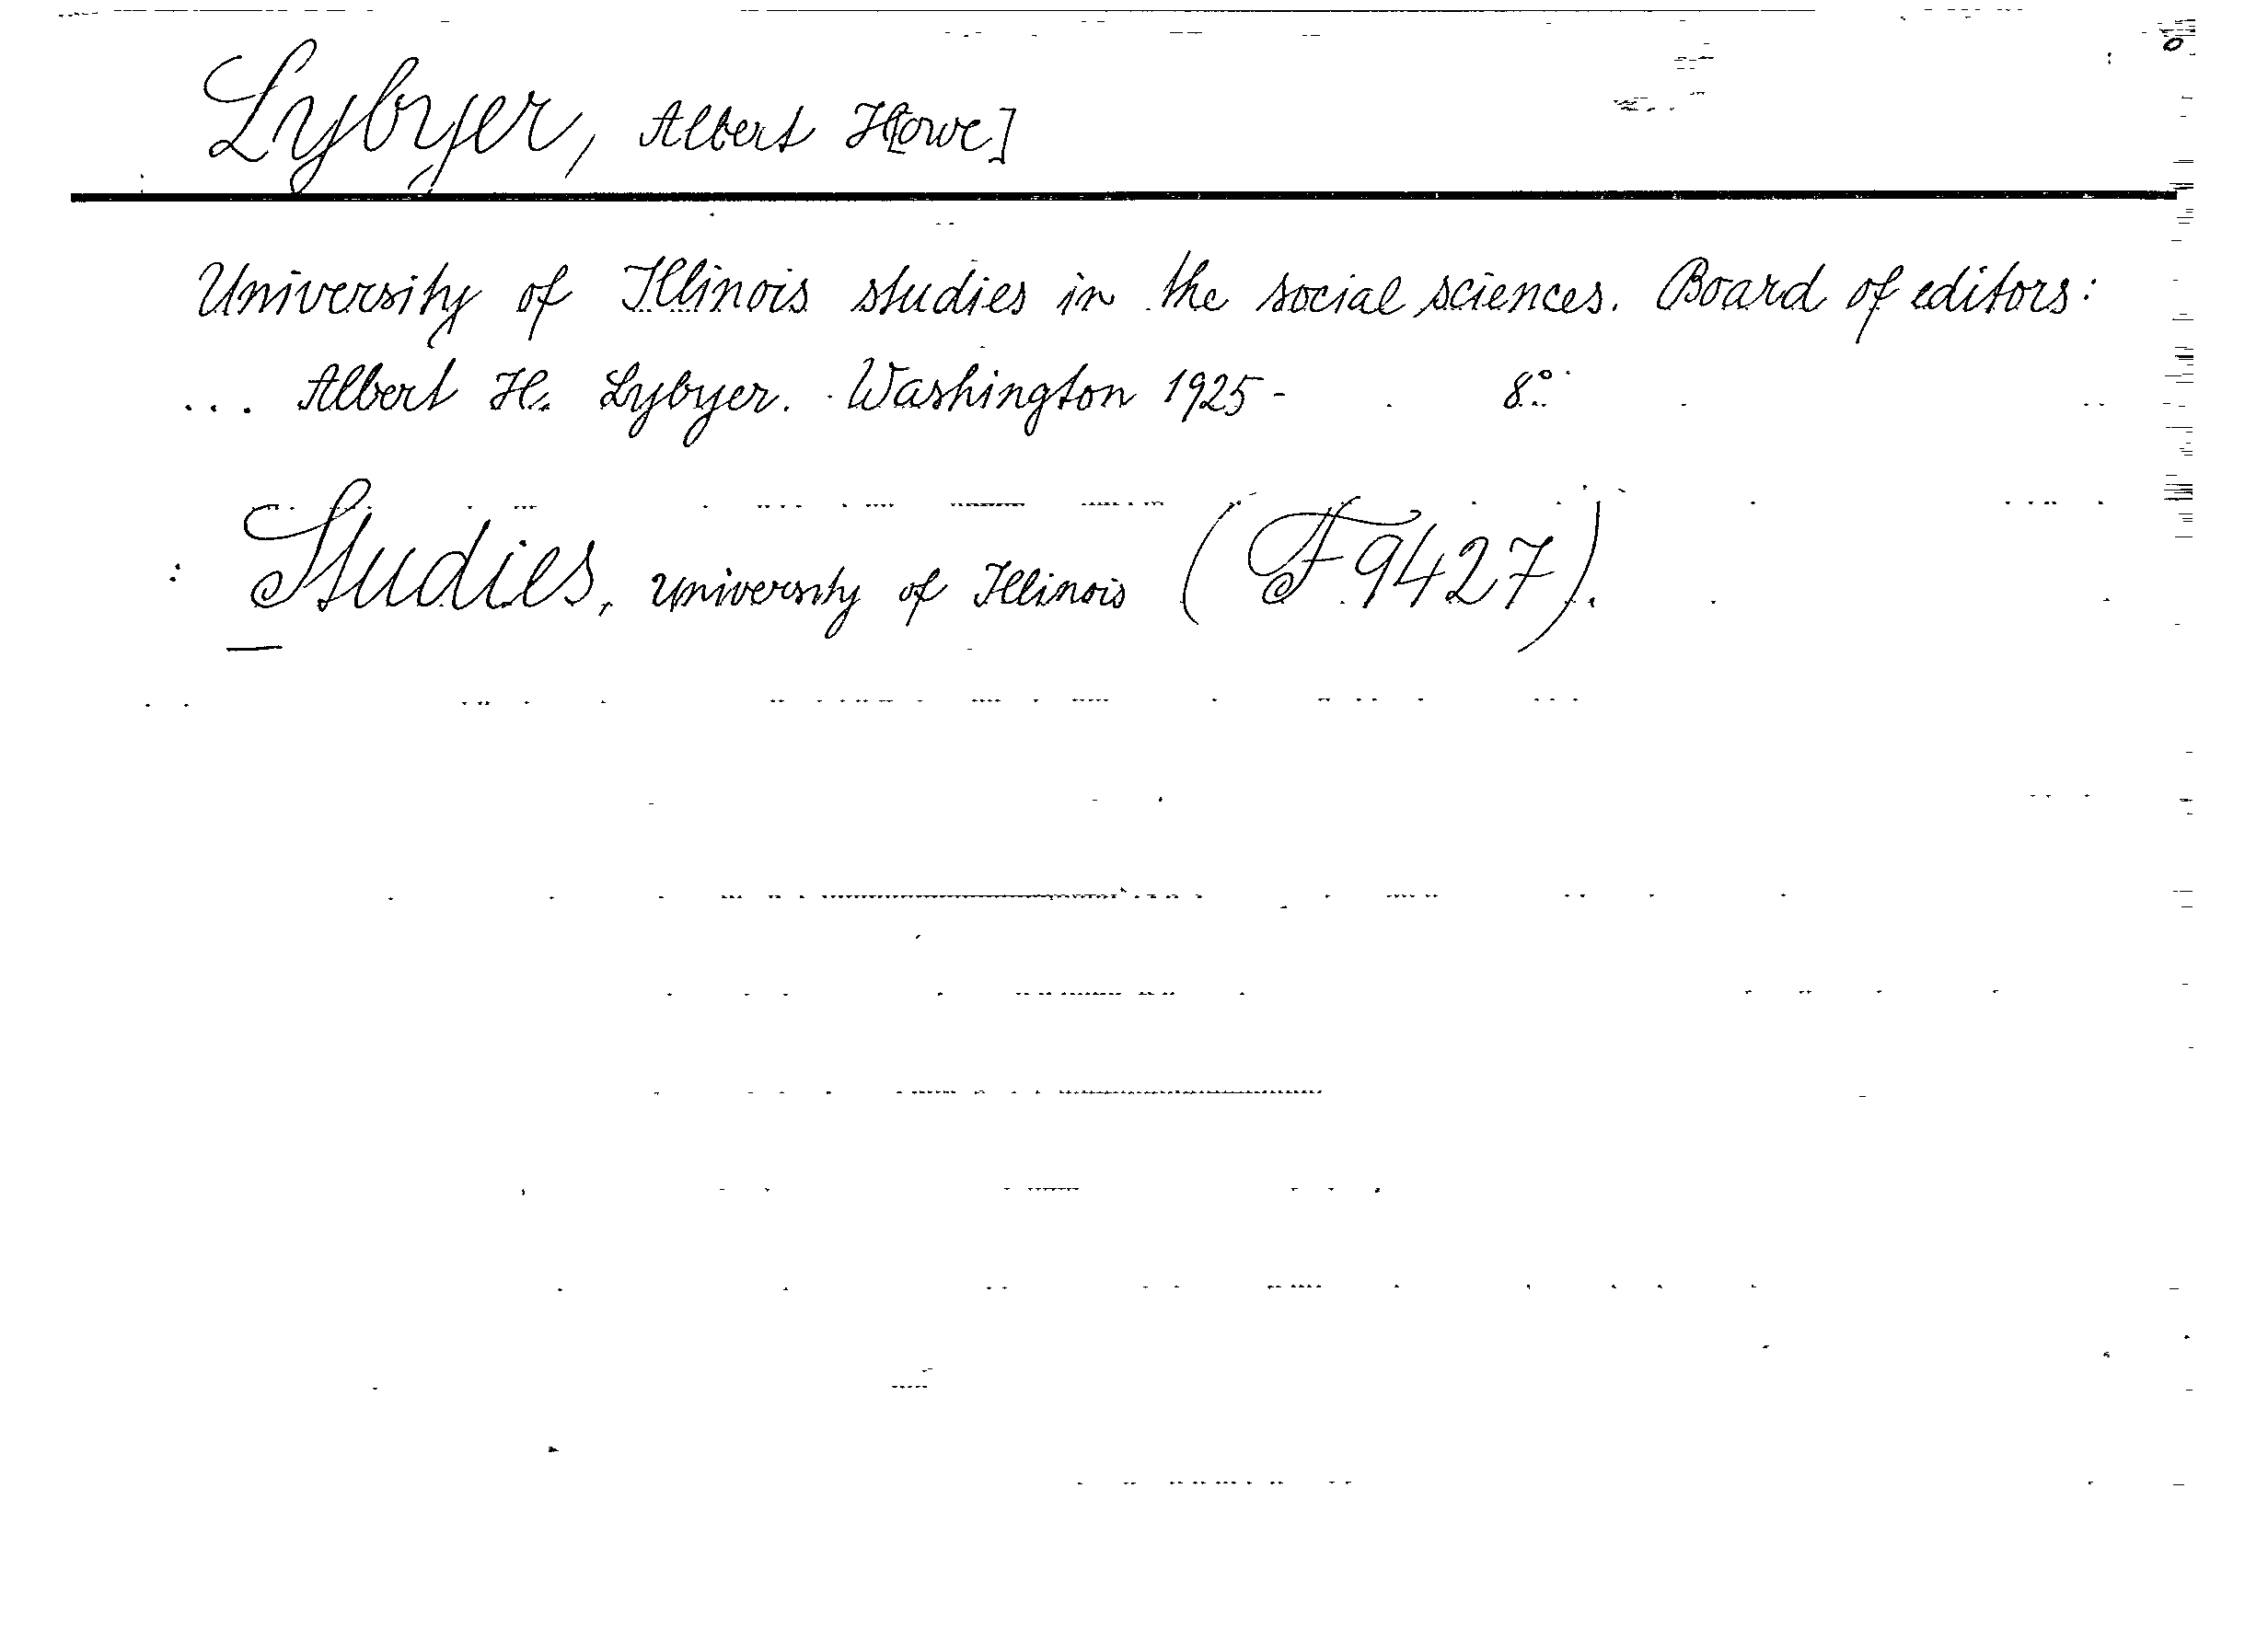 Lybyer, Albert H[owe]
University of Illinois studies in the social sciences. Board of editors:
... Albert H. Lybyer. Washington 1925- 8°
: Studies, University of Illinois (F 9427).